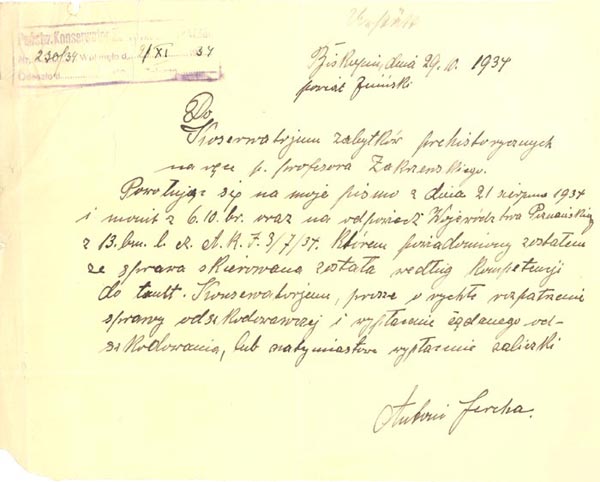 Państw. Konserwator
Nr. 230/34 Wpłynęło d. 9/XI 34
Odesłano d.
Biskupin, dnia 29.10. 1934
powiat Żniński
Do
Konserwatorjum zabytków prehistorycznych
na ręce p. profesora Zakrzewskiego.
Powołując się na moje pismo z dnia 21 sierpnia 1934
i monit z 6.10. br. oraz na odpowiedź Województwa Poznańskiego
z 13. bm. l. cz. A.K.F. 3/7/34. którem powiadomiony zostałem
że sprawa skierowana została według kompetencji
do tamt. Konserwatorjum, proszę o rychłe rozpatrzenie
sprawy odszkodowawczej i wypłacenie żądanego od-
szkodowania, lub natymiastowe wypłacenie zaliczki
Antoni Jercha.